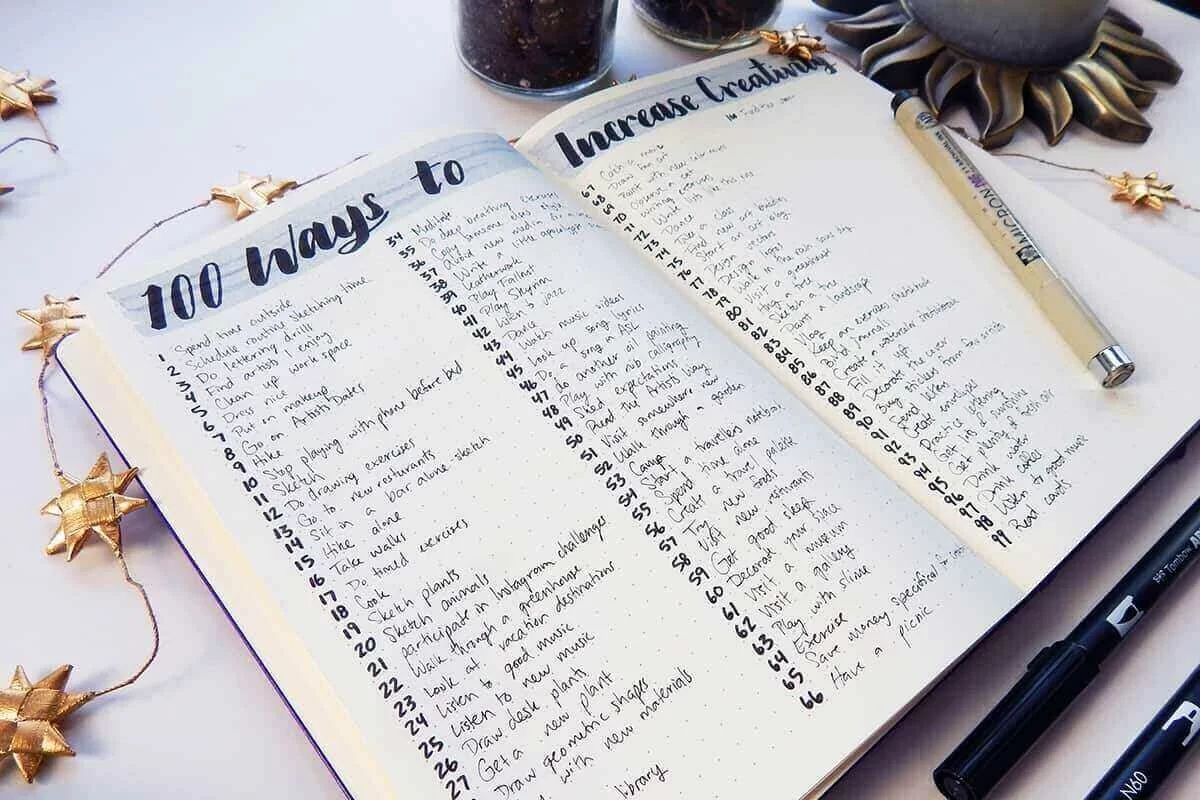 100 Ways to
1 Spend time outside
2 Schedule routine sketching time
3 Do lettering drills
4 Find artists I enjoy
5 Clean up work space
6 Dress nice
7 Put on makeup
8 Go on Artists Dates
9 Hike
10 Stop playing with phone before bed
11 Sketch
12 Do drawing exercises
13 Go to new resturants
14 Sit in a bar alone - sketch
15 Hike alone
16 Take walks
17 Do timed exercises
18 Cook
19 Sketch plants
20 Sketch animals
21 participate in Instagram challenges
22 Walk through a greenhouse
23 Look at vacation destinations
24 Listen to good music
25 Listen to new music
26 Draw desk plants
27 Get a new plant
Draw geometric shapes
with new materials
library
34 Meditate
35 Do deep breathing
36 Copy someone else's style
37 Avoid new media for a
38 Write a little apocalypse
39 Leatherwork
40 Play Fallout
41 Play Skyrim
42 Listen to jazz
43 Dance
44 Watch music videos
45 Look up song lyrics
46 Do a song in ASL
47 do another oil painting
48 Play with nib calligraphy
49 Shed expectations
50 Read the Artists Way
51 Visit somewhere new
52 Walk through a garden
53 Camp
54 Start a travellers notebook
55 Spend time alone
56 Create a travel palette
57 Try new foods
58 Visit new resturants
59 Get good sleep
60 Decorate your space
61 Visit a museum
62 Visit a gallery
63 Play with slime
64 Exercise
65 Save money specifical for
66 Have a picnic
Increase Creativity
67 Catch a movie
68 Draw fan art
69 Paint with new color
70 Observe a cat
71 writing exercises
72 Write lists like this one
73 Dance
74 Take a class
75 Find new art books
76 Start an art blog
77 vectors
78 Design a logo
79 Walk in the rain
80 Visit a greenhouse
81 Hug a tree
82 Sketch a tree
83 Paint a landscape
84 Vlog
85 Keep an sketchbook
86 Build journals
87 Create a watercolor sketchbook
88 Fill it up
89 Decorate the cover
90 Buy stickers from fav artists
91 Send letters
92 Create envelopes
93 Practice lettering
94 Get lots of sunshine
95 Get plenty of fresh air
96 Drink water
97 Drink coffee
98 Listen to good music
99 Read cards
MICRON
Tombow
N60